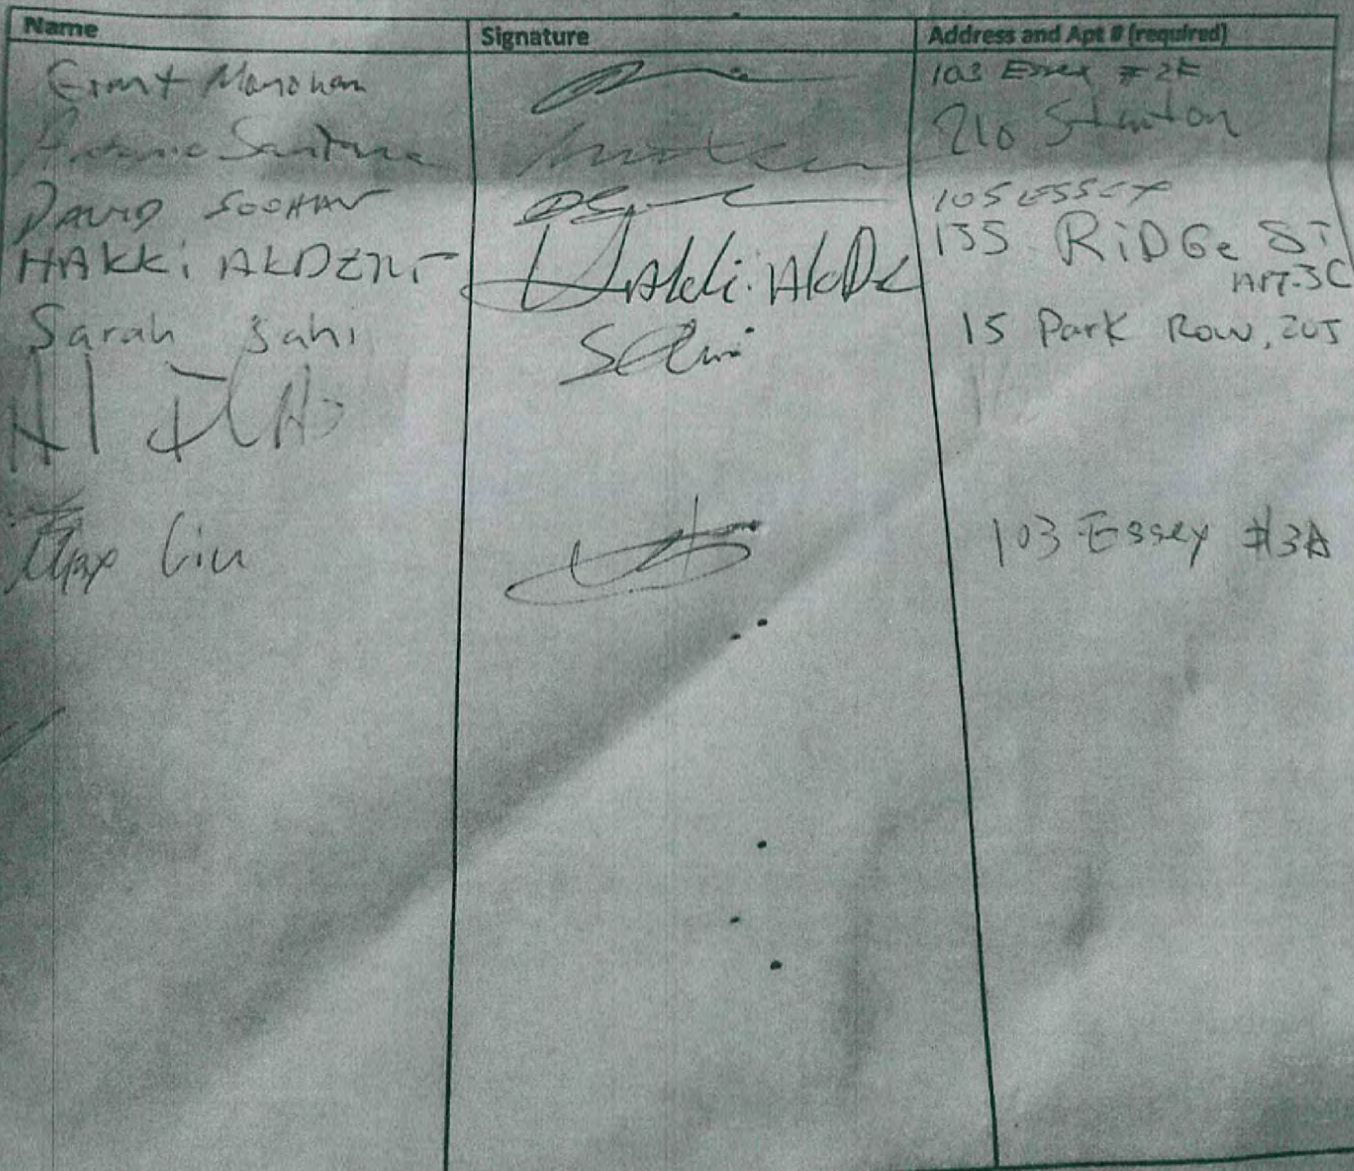 Name Signature Address and Apt # (required)
Grant Monohan 103 Essex #2E
Antonio Santana 210 Stanton
DAVID SOOHAN 105 ESSEX
HAKKi AKDENIZ Hakki AkDe 135 RiDGe ST
APT-3C
Sarah Sahi SSahi 15 Park Row, 205
Al
Max Liu 103 Essex #3A